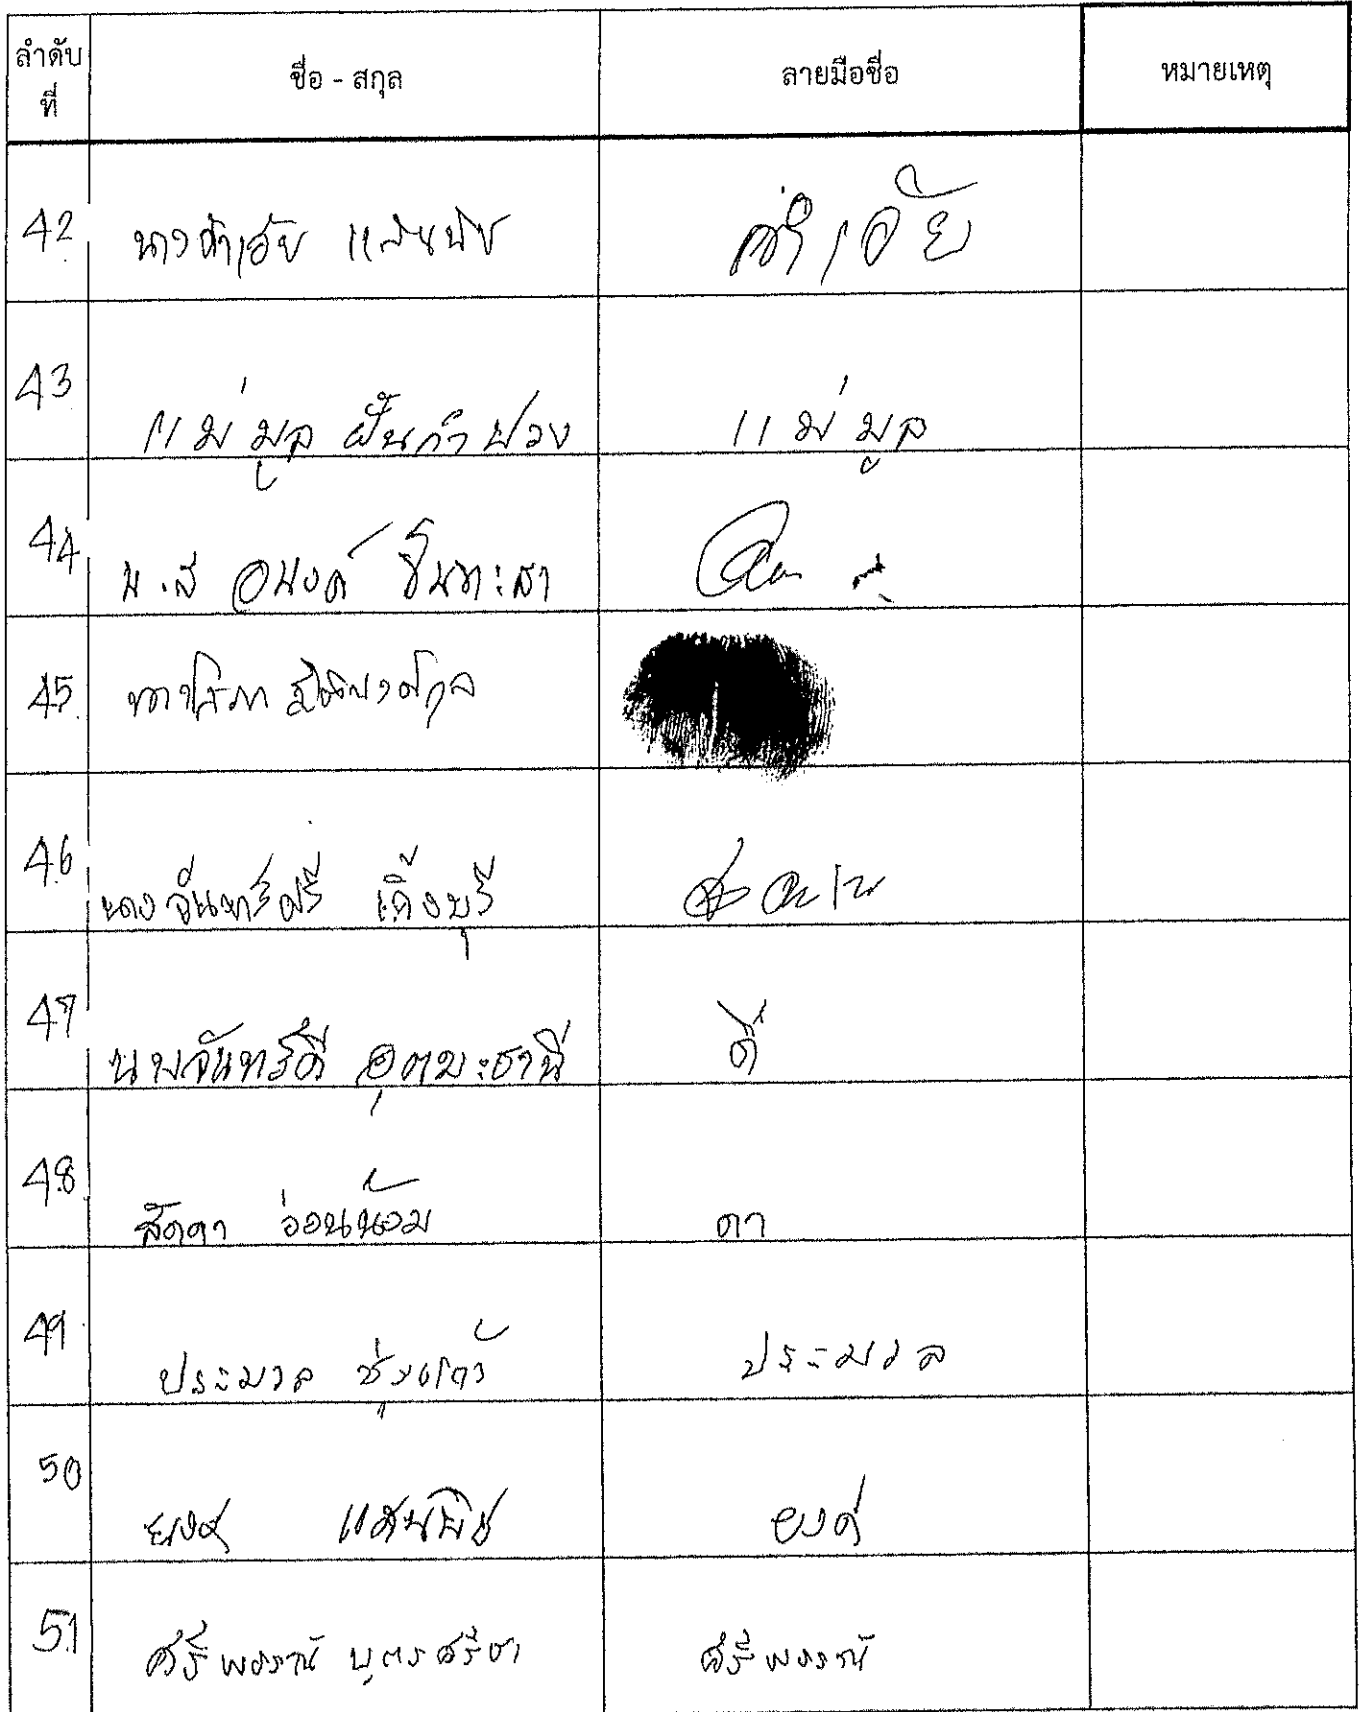 ลำดับ
ที่
ชื่อ - สกุล ลายมือชื่อ หมายเหตุ
42 นางคำเอ้ย แสนพิช คำเอ้ย
43 แม่มูล ฝั้นกำปวง แม่มูล
44 น.ส อนงค์ ขันทะสา
45
46 นางจันทร์ศรี เถิงบุรี
47 นางจันทร์ดี อุตมะธานี ดี
48 ลัดดา อ่อนน้อม ดา
49 ประมวล ซุ่งแก้ว ประมวล
50 ยงค์ แสนพิช ยงค์
51 ศรีพรรณ์ บุตรศรีชา ศรีพรรณ์